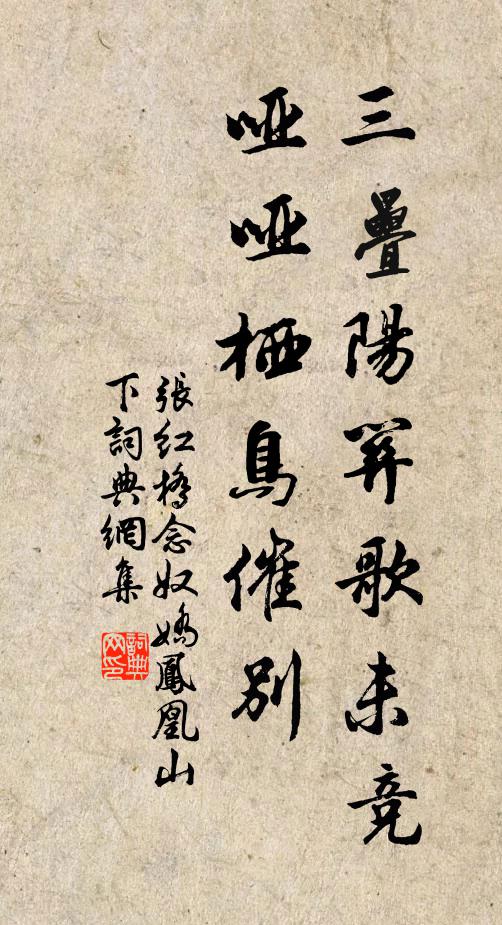 三疊陽關歌未竟
啞啞栖烏催別
張紅橋念奴嬌鳳凰山
下詞典網集
詞典网印